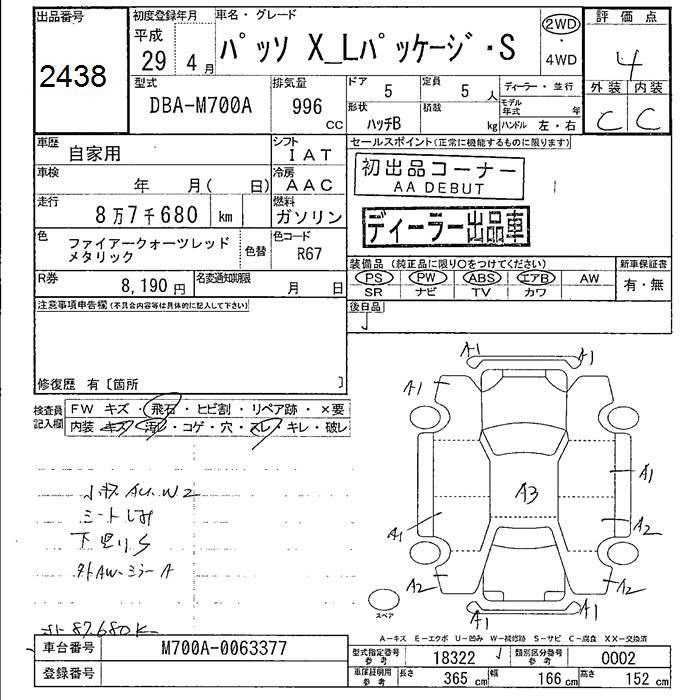 出品番号
2438
初度登録年月
平成
29年 4月
車名・グレード
パッソ X_Lパッケージ・S
2WD
・
4WD
評価点
4
外装 内装
C C
型式
DBA-M700A
排気量
996
CC
ドア
5
定員
5人
形状
ハッチB
積載
kg
ディーラー・並行
モデル年式 年
ハンドル 左・右
車歴
自家用
シフト
IAT
車検
年 月( 日)
冷房
AAC
走行
8万7千680 km
燃料
ガソリン
色
ファイアークォーツレッド
メタリック
色替
色コード
R67
R券
8,190円
名変通知期限
月 日
セールスポイント(正常に機能するものに限ります)
初出品コーナー
AA DEBUT
ディーラー出品車
装備品 (純正品に限り○をつけてください)
新車保証書
PS PW ABS エアB AW
有・無
SR ナビ TV カワ
後日品
注意事項申告欄(不具合内容等は具体的に記入して下さい)
修復歴 有〔箇所 〕
検査員
記入欄
FW キズ・飛石・ヒビ割・リペア跡・×要
内装 キズ・汚レ・コゲ・穴・スレ・キレ・破レ
小キズ AU.W2
シートしみ
下廻りS
外AW-ミラーA
87.680K
A1
A1
A1
A1
A3
A1
A2
A2
A2
A1
A1
スペア
A-キズ E-エクボ U-凹み W-補修跡 S-サビ C-腐食 XX-交換済
車台番号
M700A-0063377
登録番号
型式指定番号
参考
18322
類別区分番号
参考
0002
車庫証明用
参考
長さ
365 cm
幅
166 cm
高さ
152 cm